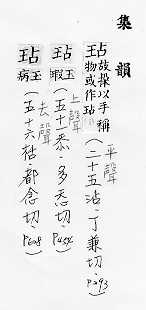 集韻
玷 敁挆以手稱物或作玷 (二十五沾・丁兼切・P293)
平聲
玷 玉瑕 (五十一忝・多忝切・P454)
上聲
玷 玉病 (五十六㮇・都念切・P628)
去聲